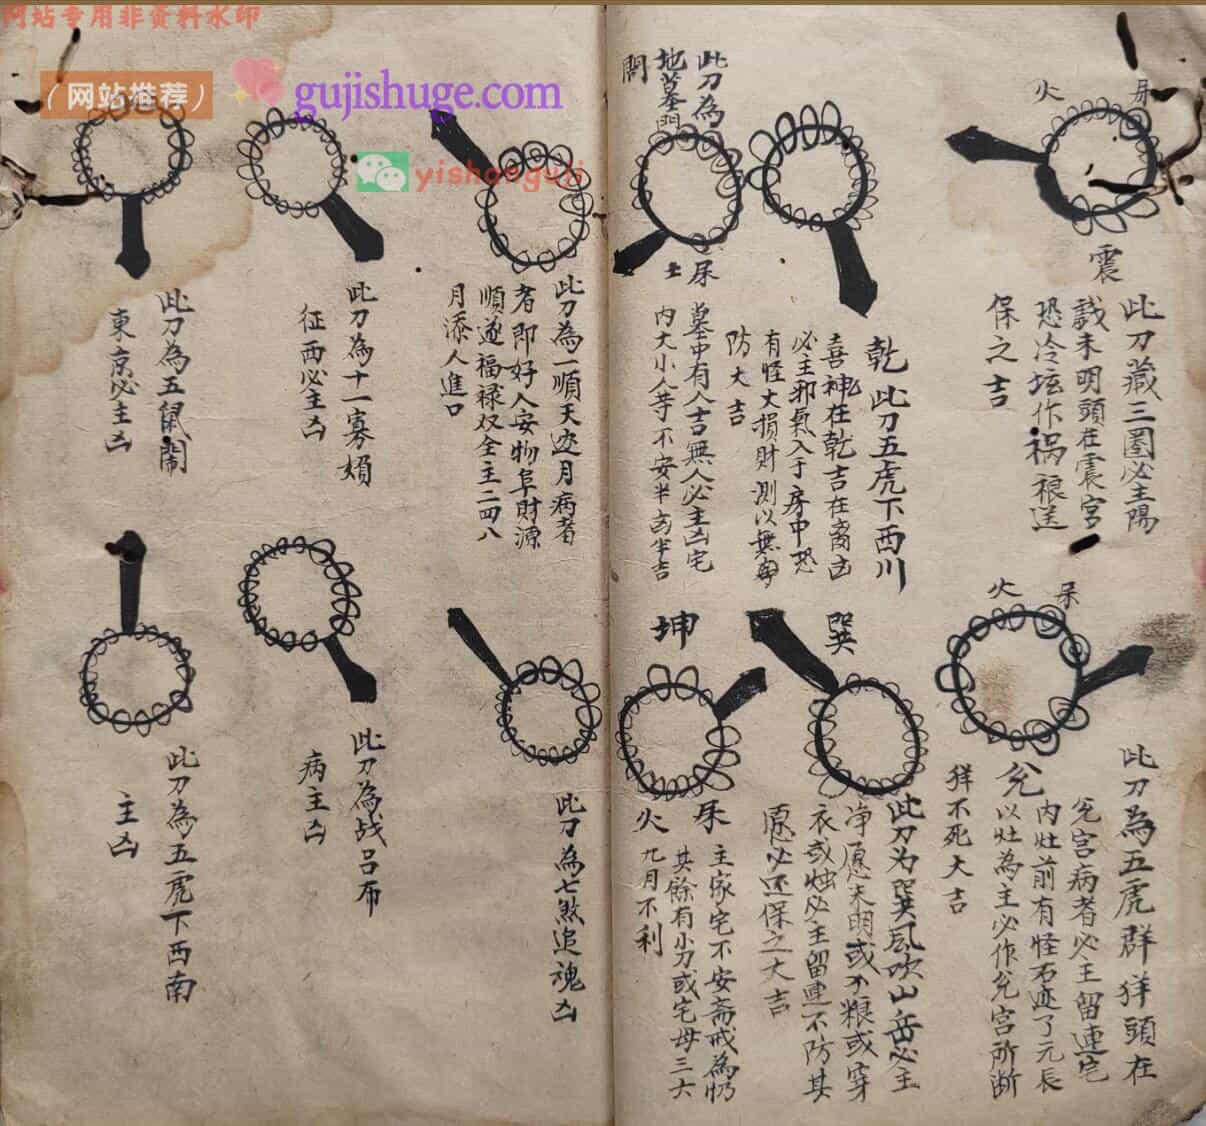 网站专用非资料水印
（网站推荐）
gujishuge.com
yishonguji
火
杀
震
此刀藏三圈必主陽
戝未明頭在震宮
恐冷坛作祸
保之吉
乾
此刀五虎下西川
喜神在乾吉在离凶
必主邪氣入于房中恐
有怪大損財測以無
防大吉
此刀為
地墓門
開
土
墓中有人吉無人必主凶宅
内大小人等不安半凶半吉
火
此刀為五虎群羊頭在
兌宮病者必主留連宅
内灶前有怪石迹了元辰
兌
以灶為主必作兌宮所断
羊不死大吉
巽
此刀为巽風吹山岳必主
净愿未明或不粮或穿
衣或烛必主留連不防其
愿必还保之大吉
坤
火
主家宅不安斋戒為
其餘有小刀或宅母三六
九月不利
此刀為一順天迹月病者
者即好人安物阜財源
順遂福禄双全主二四八
月添人進口
此刀為十一寡婦
征西必主凶
此刀為五鼠鬧
東京必主凶
此刀為七煞追魂凶
此刀為战吕布
病主凶
此刀為五虎下西南
主凶